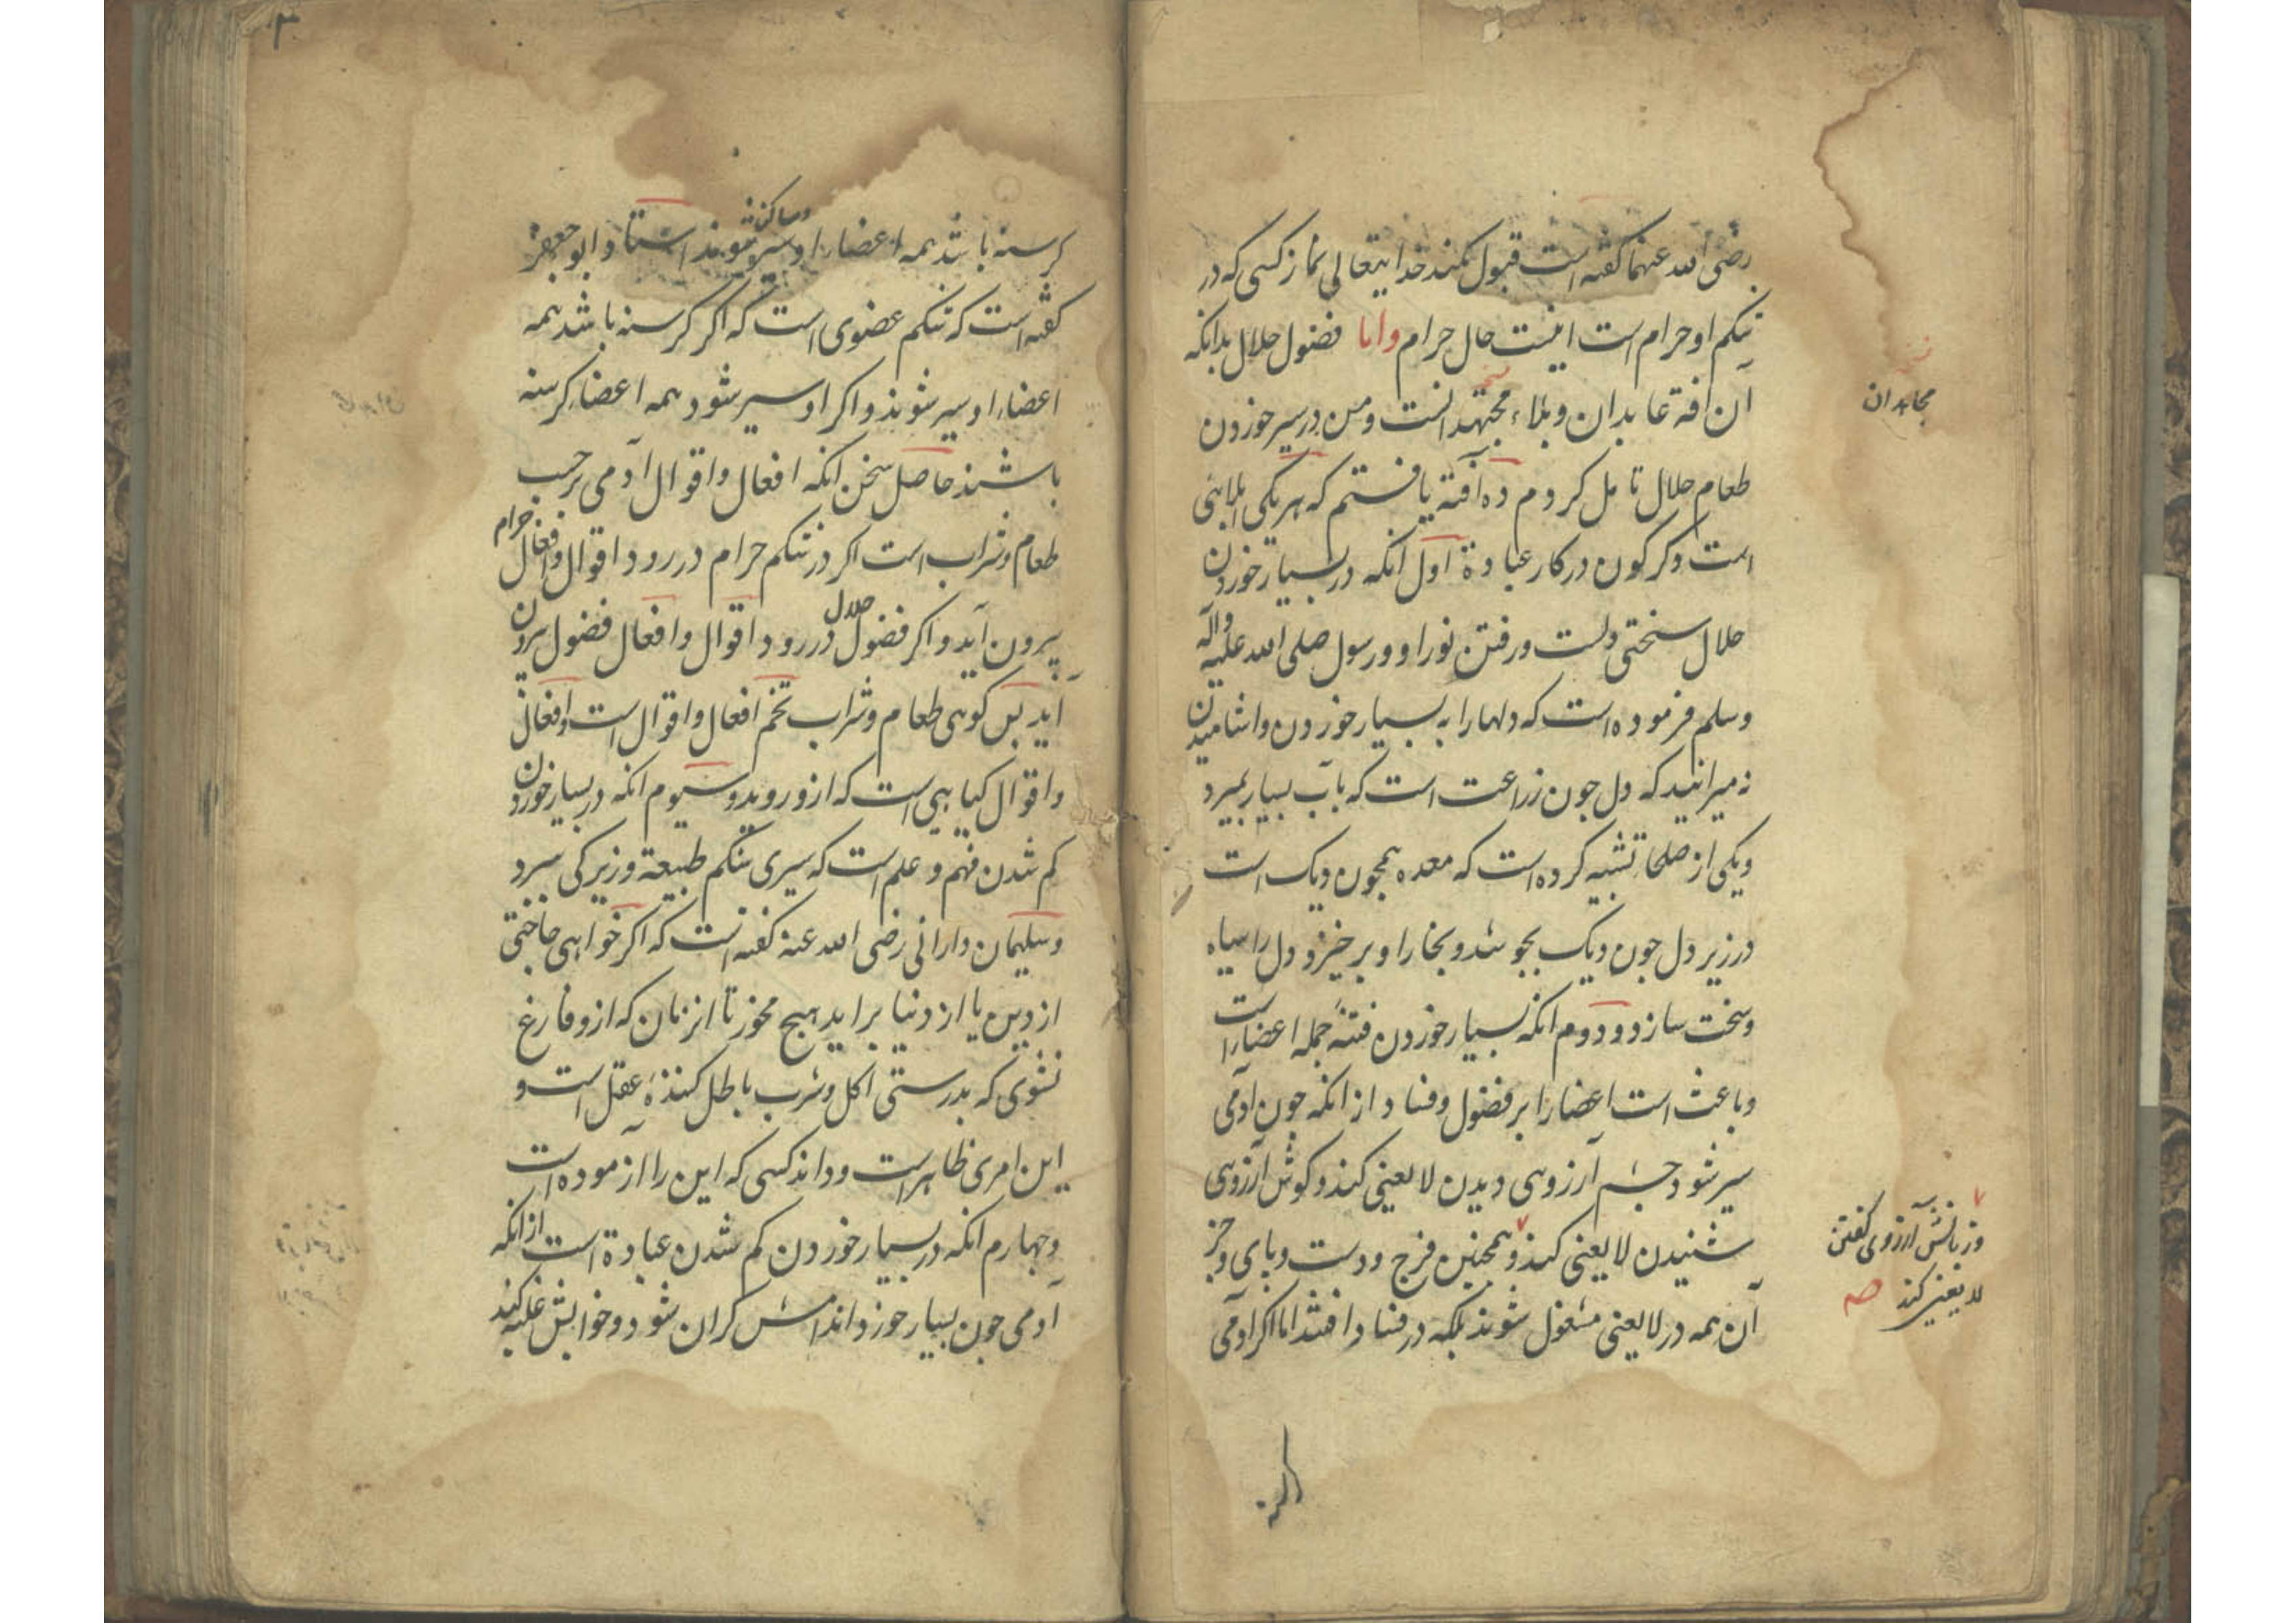 رضی الله عنهما کفته است قبول نکند خدایتعالی نماز کسی که در
شکم او حرام است اینست حال حرام واما فضول حلال بدانکه
آن افة عابدان وبلاء مجتهدانست ومن در سیر خوردن
مجاهدان
طعام حلال تامل کردم ده آفة یافتم که هر یکی بلا
است در کار عبادة اول انکه در بسیار خوردن
حلال سختی دلست ورفتن نور او ورسول صلی الله علیه وآله
وسلم فرموده است که دلها را به بسیار خوردن واشامیدن
نه میرانید که دل جون زراعت است که بآب بسیار بمیرد
ویکی از صلحا تشبیه کرده است که معده همجون دیک است
در زیر دل جون دیک بجوشد وبخار او بر خیزد ودل را سیاه
وسخت سازد ودوم انکه بسیار خوردن فتنهٔ جمله اعضا است
وباعث است اعضا را بر فضول وفساد از انکه جون آدمی
سیر شود جشم آرزوی دیدن لا یعنی کند وکوش آرزوی
شنیدن لا یعنی کند وهمجنین فرج ودست وبای وجز
وزبانش آرزوی کفتن
لا یعنی کند صح
آن همه در لا یعنی مشغول شوند بلکه در فساد افتند اما اکر آدمی
کرسنه باشد همه اعضاء او سیر شوند وساکن استا وابو جعفر
کفته است که شکم عضوی است که اکر کرسنه باشد همه
اعضاء او سیر شوند واکر او سیر شود همه اعضا کرسنه
باشند حاصل سخن انکه افعال واقوال آدمی بر حسب
طعام وشراب است اکر در شکم حرام در رود اقوال وافعال حرام
بیرون آید واکر فضول حلال در رود اقوال وافعال فضول بیرون
آید بس کوی طعام وشراب تخم افعال واقوال است وافعال
واقوال کیاهی است که ازو روید وسیوم انکه در بسیار خوردن
کم شدن فهم وعلم است که سیری شکم طبیعة وزیرکی ببرد
وسلیمان دارانی رضی الله عنه کفته است که اکر خواهی حاجتی
از دین یا از دنیا بر اید هیج مخور تا انزمان که ازو فارغ
نشوی که بدرستی اکل وشرب باطل کنندهٔ عقل است و
این امری ظاهر است وداند کسی که این را آزموده است
وجهارم انکه در بسیار خوردن کم شدن عبادة است از انکه
آدمی جون بسیار خورد اندامش کران شود وخوابش غلبه کند